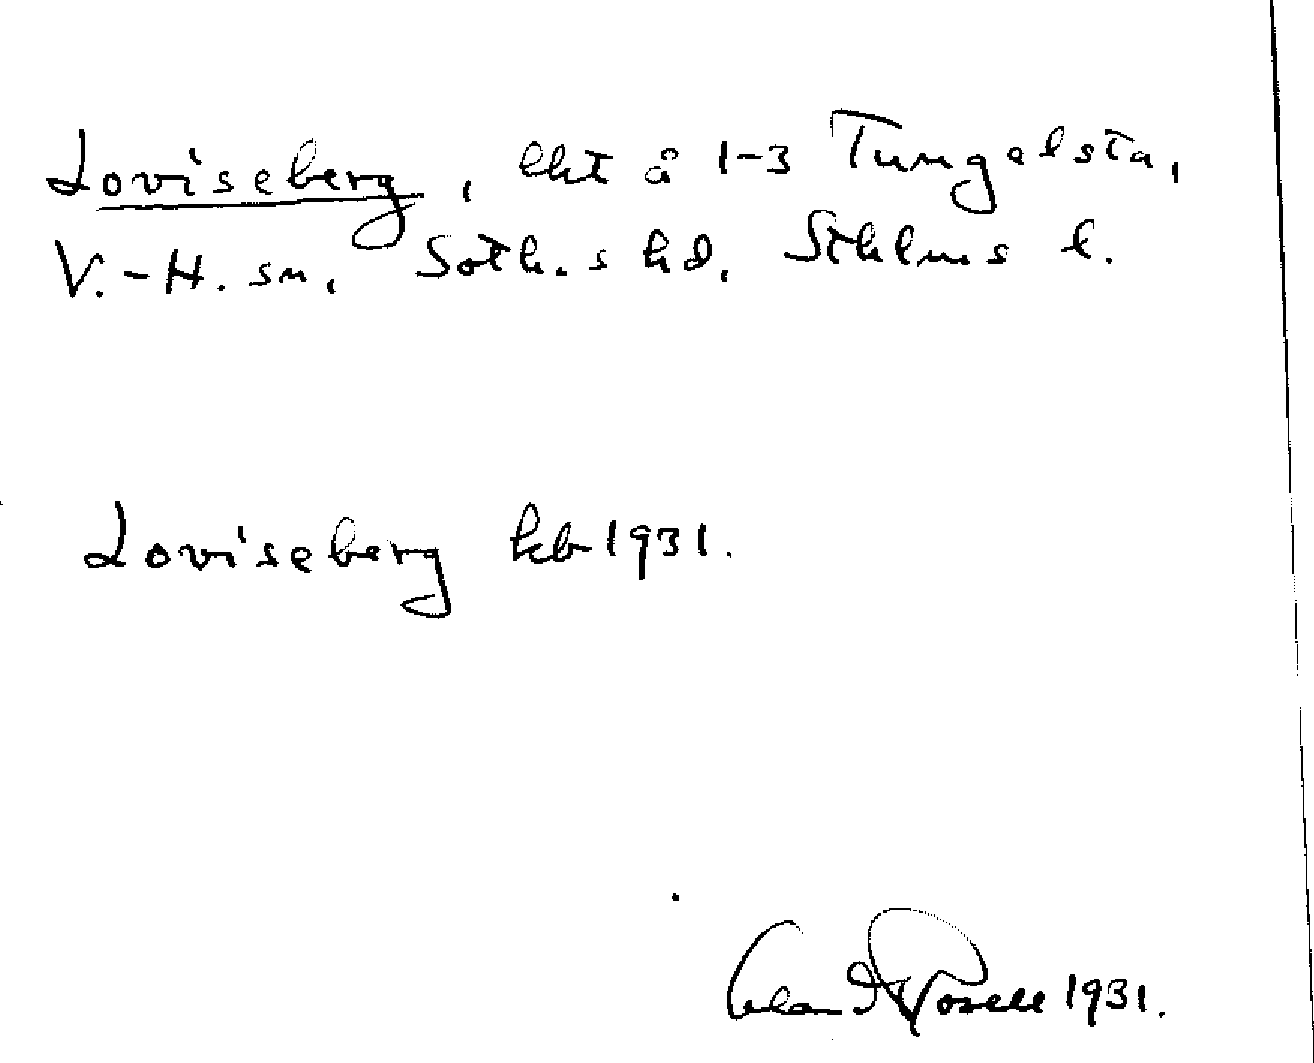 Loviseberg, lht å 1-3 Tungelsta,
V.-H. sn, Soth.s hd, Sthlms l.
Loviseberg kb 1931.
1931.